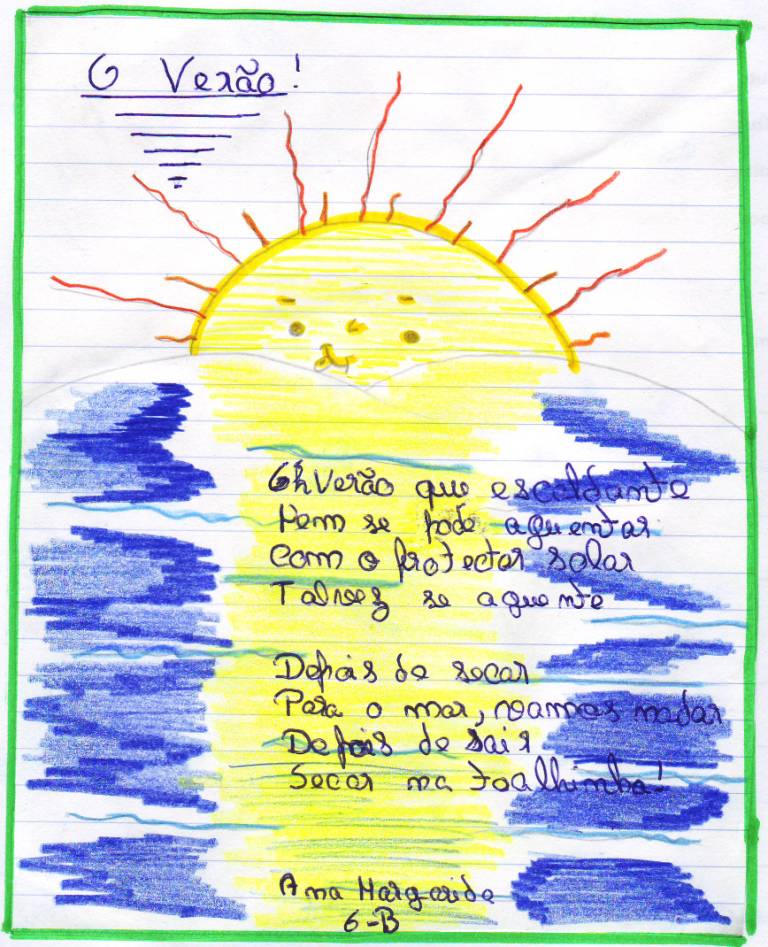 O Verão!
Oh Verão que escaldante
Nem se pode aguentar
Com o protector solar
Talvez se aguente
Depois de secar
Para o mar, vamos nadar
Depois de sair
Secar na toalhinha!
Ana Margarida
6-B